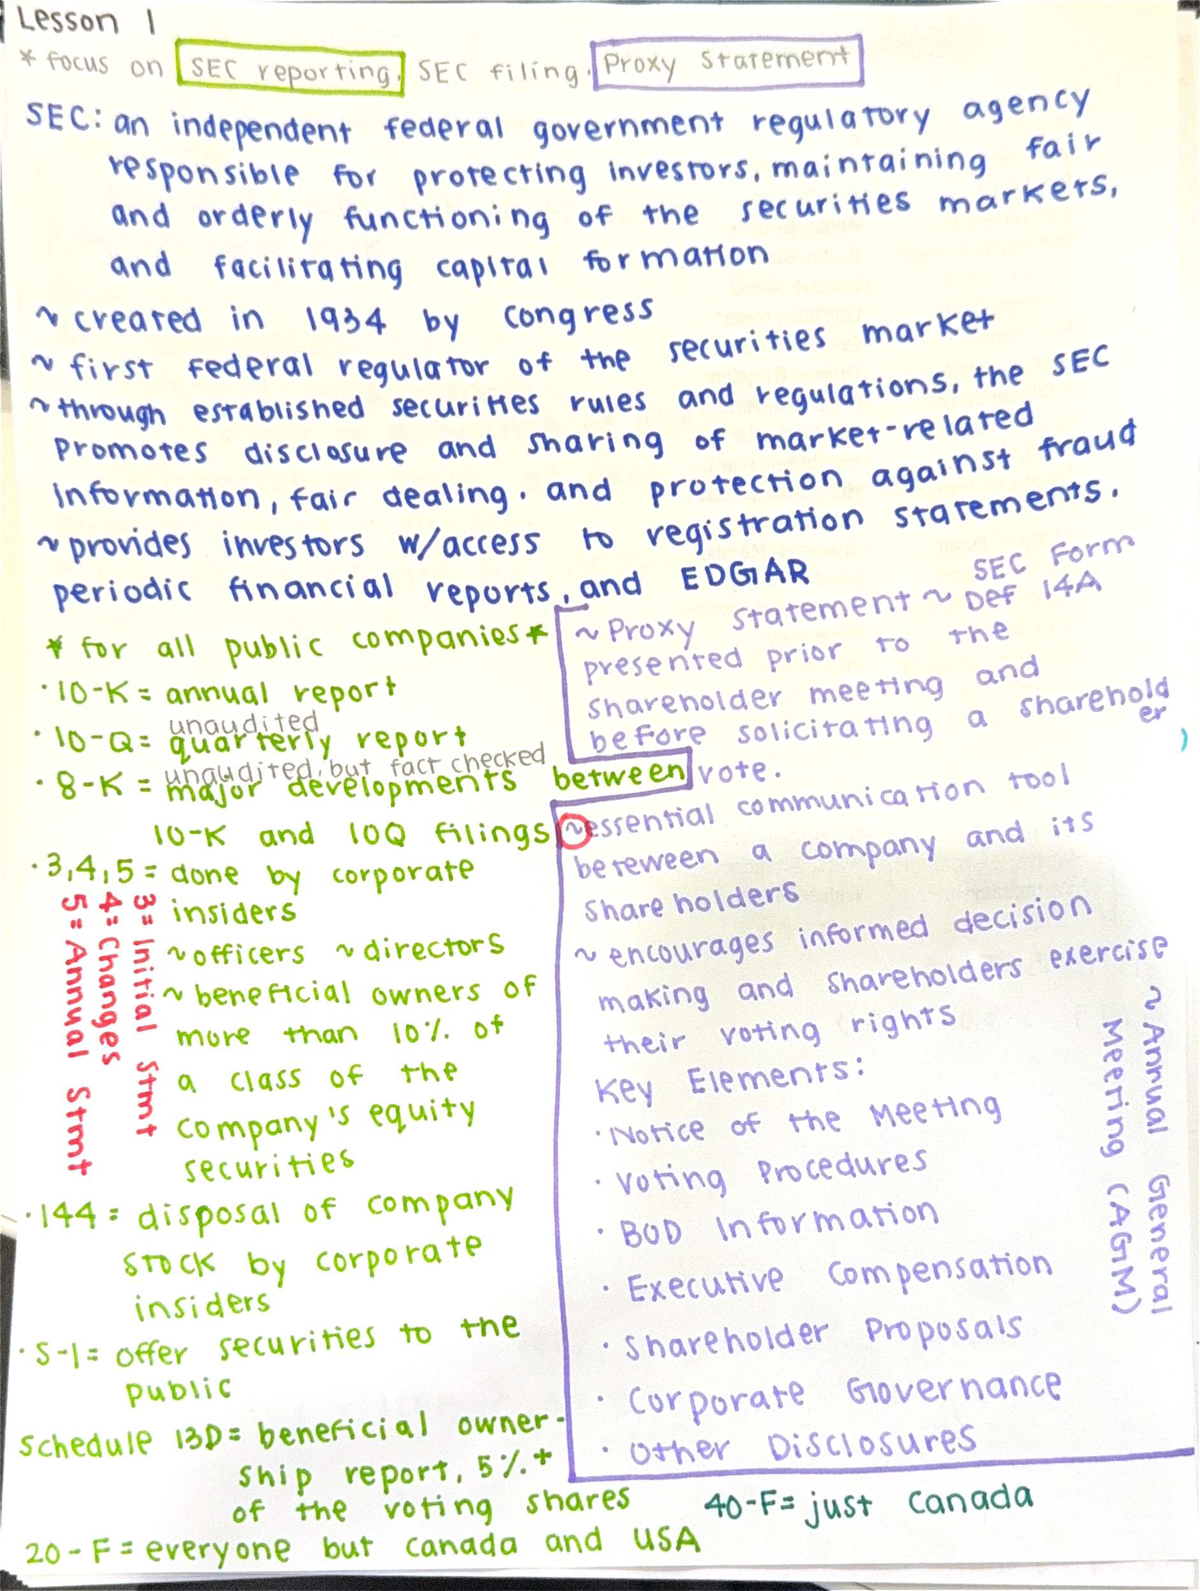 Lesson 1
* focus on SEC reporting, SEC filing, Proxy Statement
SEC: an independent federal government regulatory agency
responsible for protecting investors, maintaining fair
and orderly functioning of the securities markets,
and facilitating capital formation
~ created in 1934 by Congress
~ first federal regulator of the securities market
~ through established securities rules and regulations, the SEC
promotes disclosure and sharing of market-related
information, fair dealing, and protection against fraud
~ provides investors w/access to registration statements,
periodic financial reports, and EDGAR
* for all public companies *
· 10-K = annual report
unaudited
· 10-Q = quarterly report
unaudited, but fact checked
· 8-K = major developments between
10-K and 10Q filings
· 3,4,5 = done by corporate
insiders
~ officers ~ directors
~ beneficial owners of
more than 10% of
a class of the
company's equity
securities
3 = Initial Stmt
4 = Changes
5 = Annual Stmt
· 144 = disposal of company
stock by corporate
insiders
· S-1 = offer securities to the
public
Schedule 13D = beneficial owner-
ship report, 5%+
of the voting shares
20-F = everyone but Canada and USA
40-F = just Canada
~ Proxy Statement ~ SEC Form
Def 14A
presented prior to the
shareholder meeting and
before solicitating a sharehold
er
vote.
~ essential communication tool
beteween a company and its
shareholders
~ encourages informed decision
making and shareholders exercise
their voting rights
Key Elements:
· Notice of the Meeting
· Voting Procedures
· BOD Information
· Executive Compensation
· Shareholder Proposals
· Corporate Governance
· Other Disclosures
~ Annual General
Meeting (AGM)